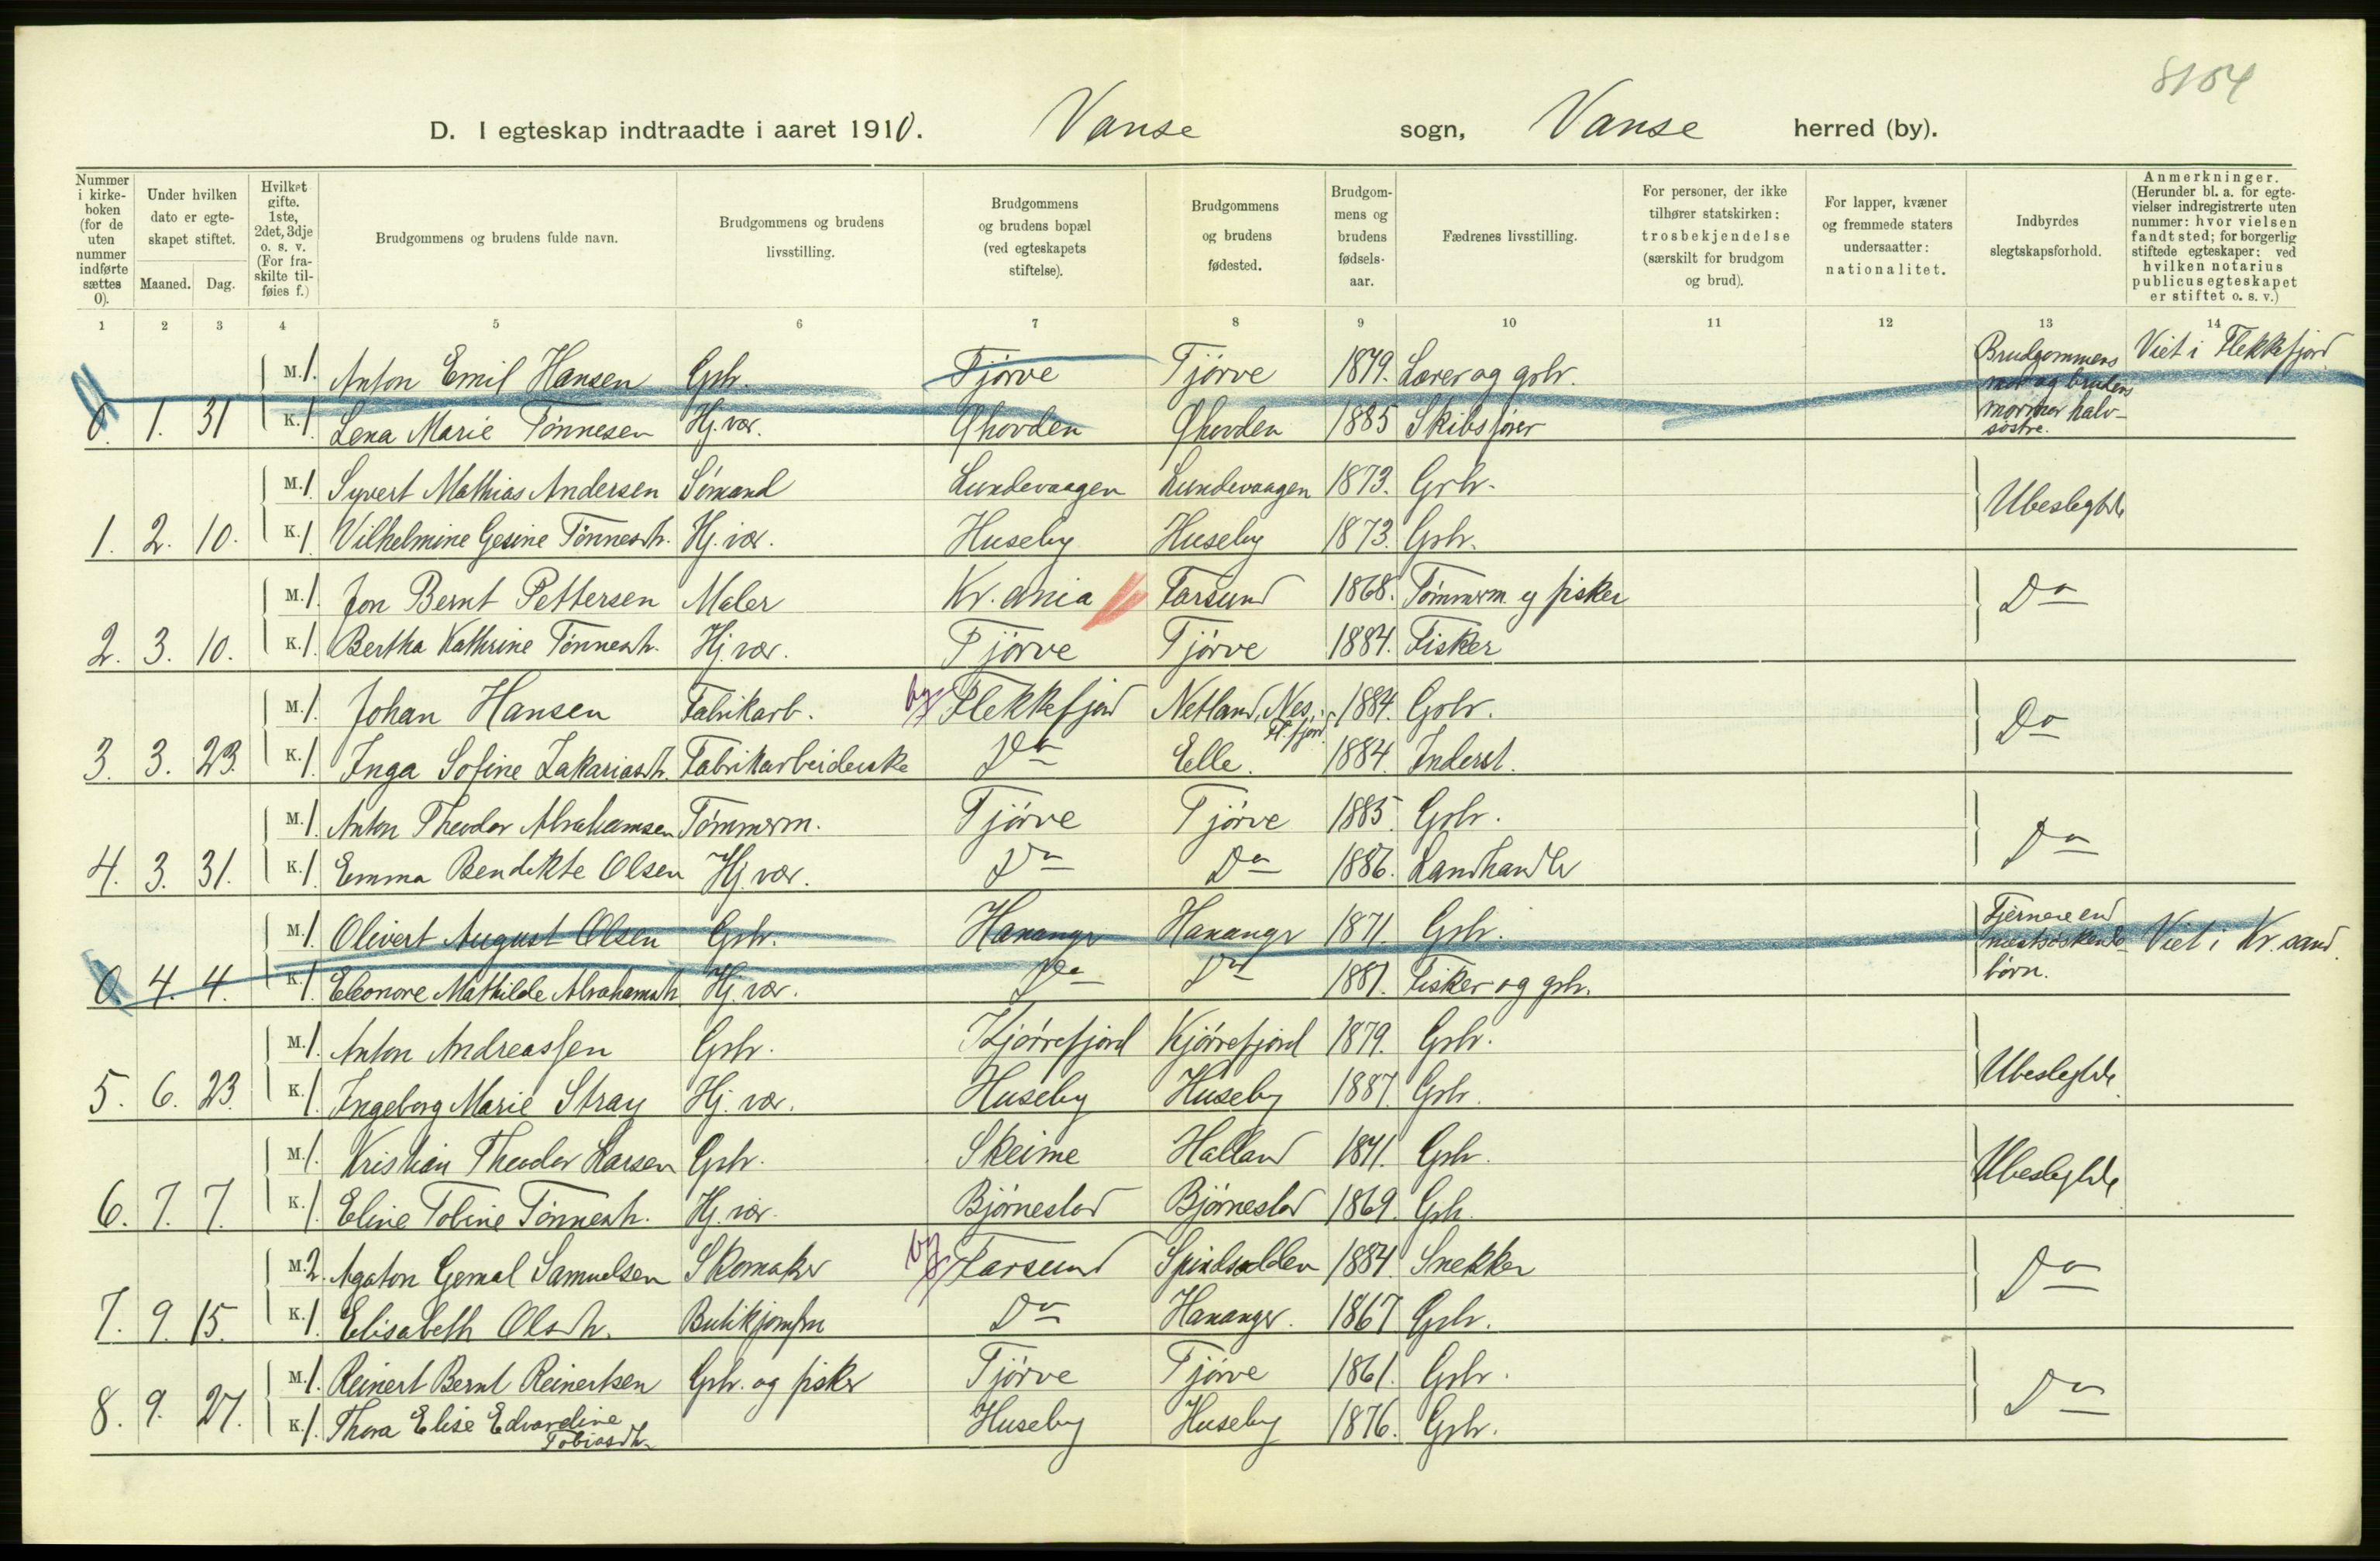 8104
D. I egteskap indtraadte i aaret 1910. Vanse sogn, Vanse herred (by).
Nummer i kirke-boken (for de uten nummer indførte sættes 0).
Under hvilken dato er egte-skapet stiftet.
Maaned. Dag.
Hvilket gifte. 1ste, 2det, 3dje o. s. v. (For fra-skilte til-føies f.)
Brudgommens og brudens fulde navn.
Brudgommens og brudens livsstilling.
Brudgommens og brudens bopæl (ved egteskapets stiftelse).
Brudgommens og brudens fødested.
Brudgom-mens og brudens fødsels-aar.
Fædrenes livsstilling.
For personer, der ikke tilhører statskirken: trosbekjendelse (særskilt for brudgom og brud).
For lapper, kvæner og fremmede staters undersaatter: nationalitet.
Indbyrdes slegtskapsforhold.
Anmerkninger. (Herunder bl. a. for egte-vielser indregistrerte uten nummer: hvor vielsen fandt sted; for borgerlig stiftede egteskaper: ved hvilken notarius publicus egteskapet er stiftet o. s. v.)
1 2 3 4 5 6 7 8 9 10 11 12 13 14
M. 1. Anton Emil Hansen Gbr. Tjörve Tjörve 1879. Lærer og gbr. Brudgommens mor og brudens mormor halv-søstre. Viet i Flekkefjord
0. 1. 31 K. 1. Lena Marie Tönnesen Hj. vær. Ghovden Ghovden 1885 Skibsfører
M. 1. Syvert Mathias Andersen Sömand Lundevaagen Lundevaagen 1873. Gbr. Ubeslegtede
1. 2. 10. K. 1 Vilhelmine Gesine Tönnesdtr. Hj. vær. Huseby Huseby 1873. Gbr.
M. 1. Jon Bernt Pettersen Maler Kr.ania Farsund 1868. Tömmerm. og fisker Do
2. 3. 10. K. 1. Bertha Kathrine Tönnesdtr. Hj. vær. Tjörve Tjörve 1884. Fisker
M. 1. Johan Hansen Fabrikarb. by Flekkefjord Netland, Nes, Fl.fjord. 1884. Gbr. Do
3. 3. 23. K. 1. Inga Sofine Zakariasdtr. Fabrikarbeiderske Do Elle. 1884. Inderst.
M. 1. Anton Theodor Abrahamsen Tömmerm. Tjörve Tjörve 1885. Gbr. Do
4. 3. 31. K. 1. Emma Bendikte Olsen Hj. vær. Do Do 1886. Landhandler
M. 1. Olivert August Olsen Gbr. Hananger Hananger 1871. Gbr. Fjernere end næstsøskende-børn. Viet i Kr.sand.
0. 4. 4. K. 1. Eleonore Mathilde Abrahamsdtr. Hj. vær. Do Do 1881. Fisker og gbr.
M. 1. Anton Andreassen Gbr. Kjörrefjord Kjörrefjord 1879. Gbr. Ubeslegtede
5. 6. 23. K. 1. Ingeborg Marie Stray Hj. vær. Huseby Huseby 1887. Gbr.
M. 1. Kristian Theodor Larsen Gbr. Skeime Halland 1871. Gbr. Ubeslegtede
6. 7. 7. K. 1. Eline Tobine Tönnesdtr. Hj. vær. Björnestad Björnestad 1869. Gbr.
M. 2. Agaton Gemal Samuelsen Skomaker by Farsund Spindsodden 1884. Snekker Do
7. 9. 15. K. 1. Elisabeth Olsdtr. Butikjomfru Do Hananger. 1867 Gbr.
M. 1. Reinert Bernt Reinertsen Gbr. og fisker Tjörve Tjörve 1861. Gbr. Do
8. 9. 27. K. 1. Thora Elise Edvardine Tobiasdtr. Huseby Huseby 1876. Gbr.